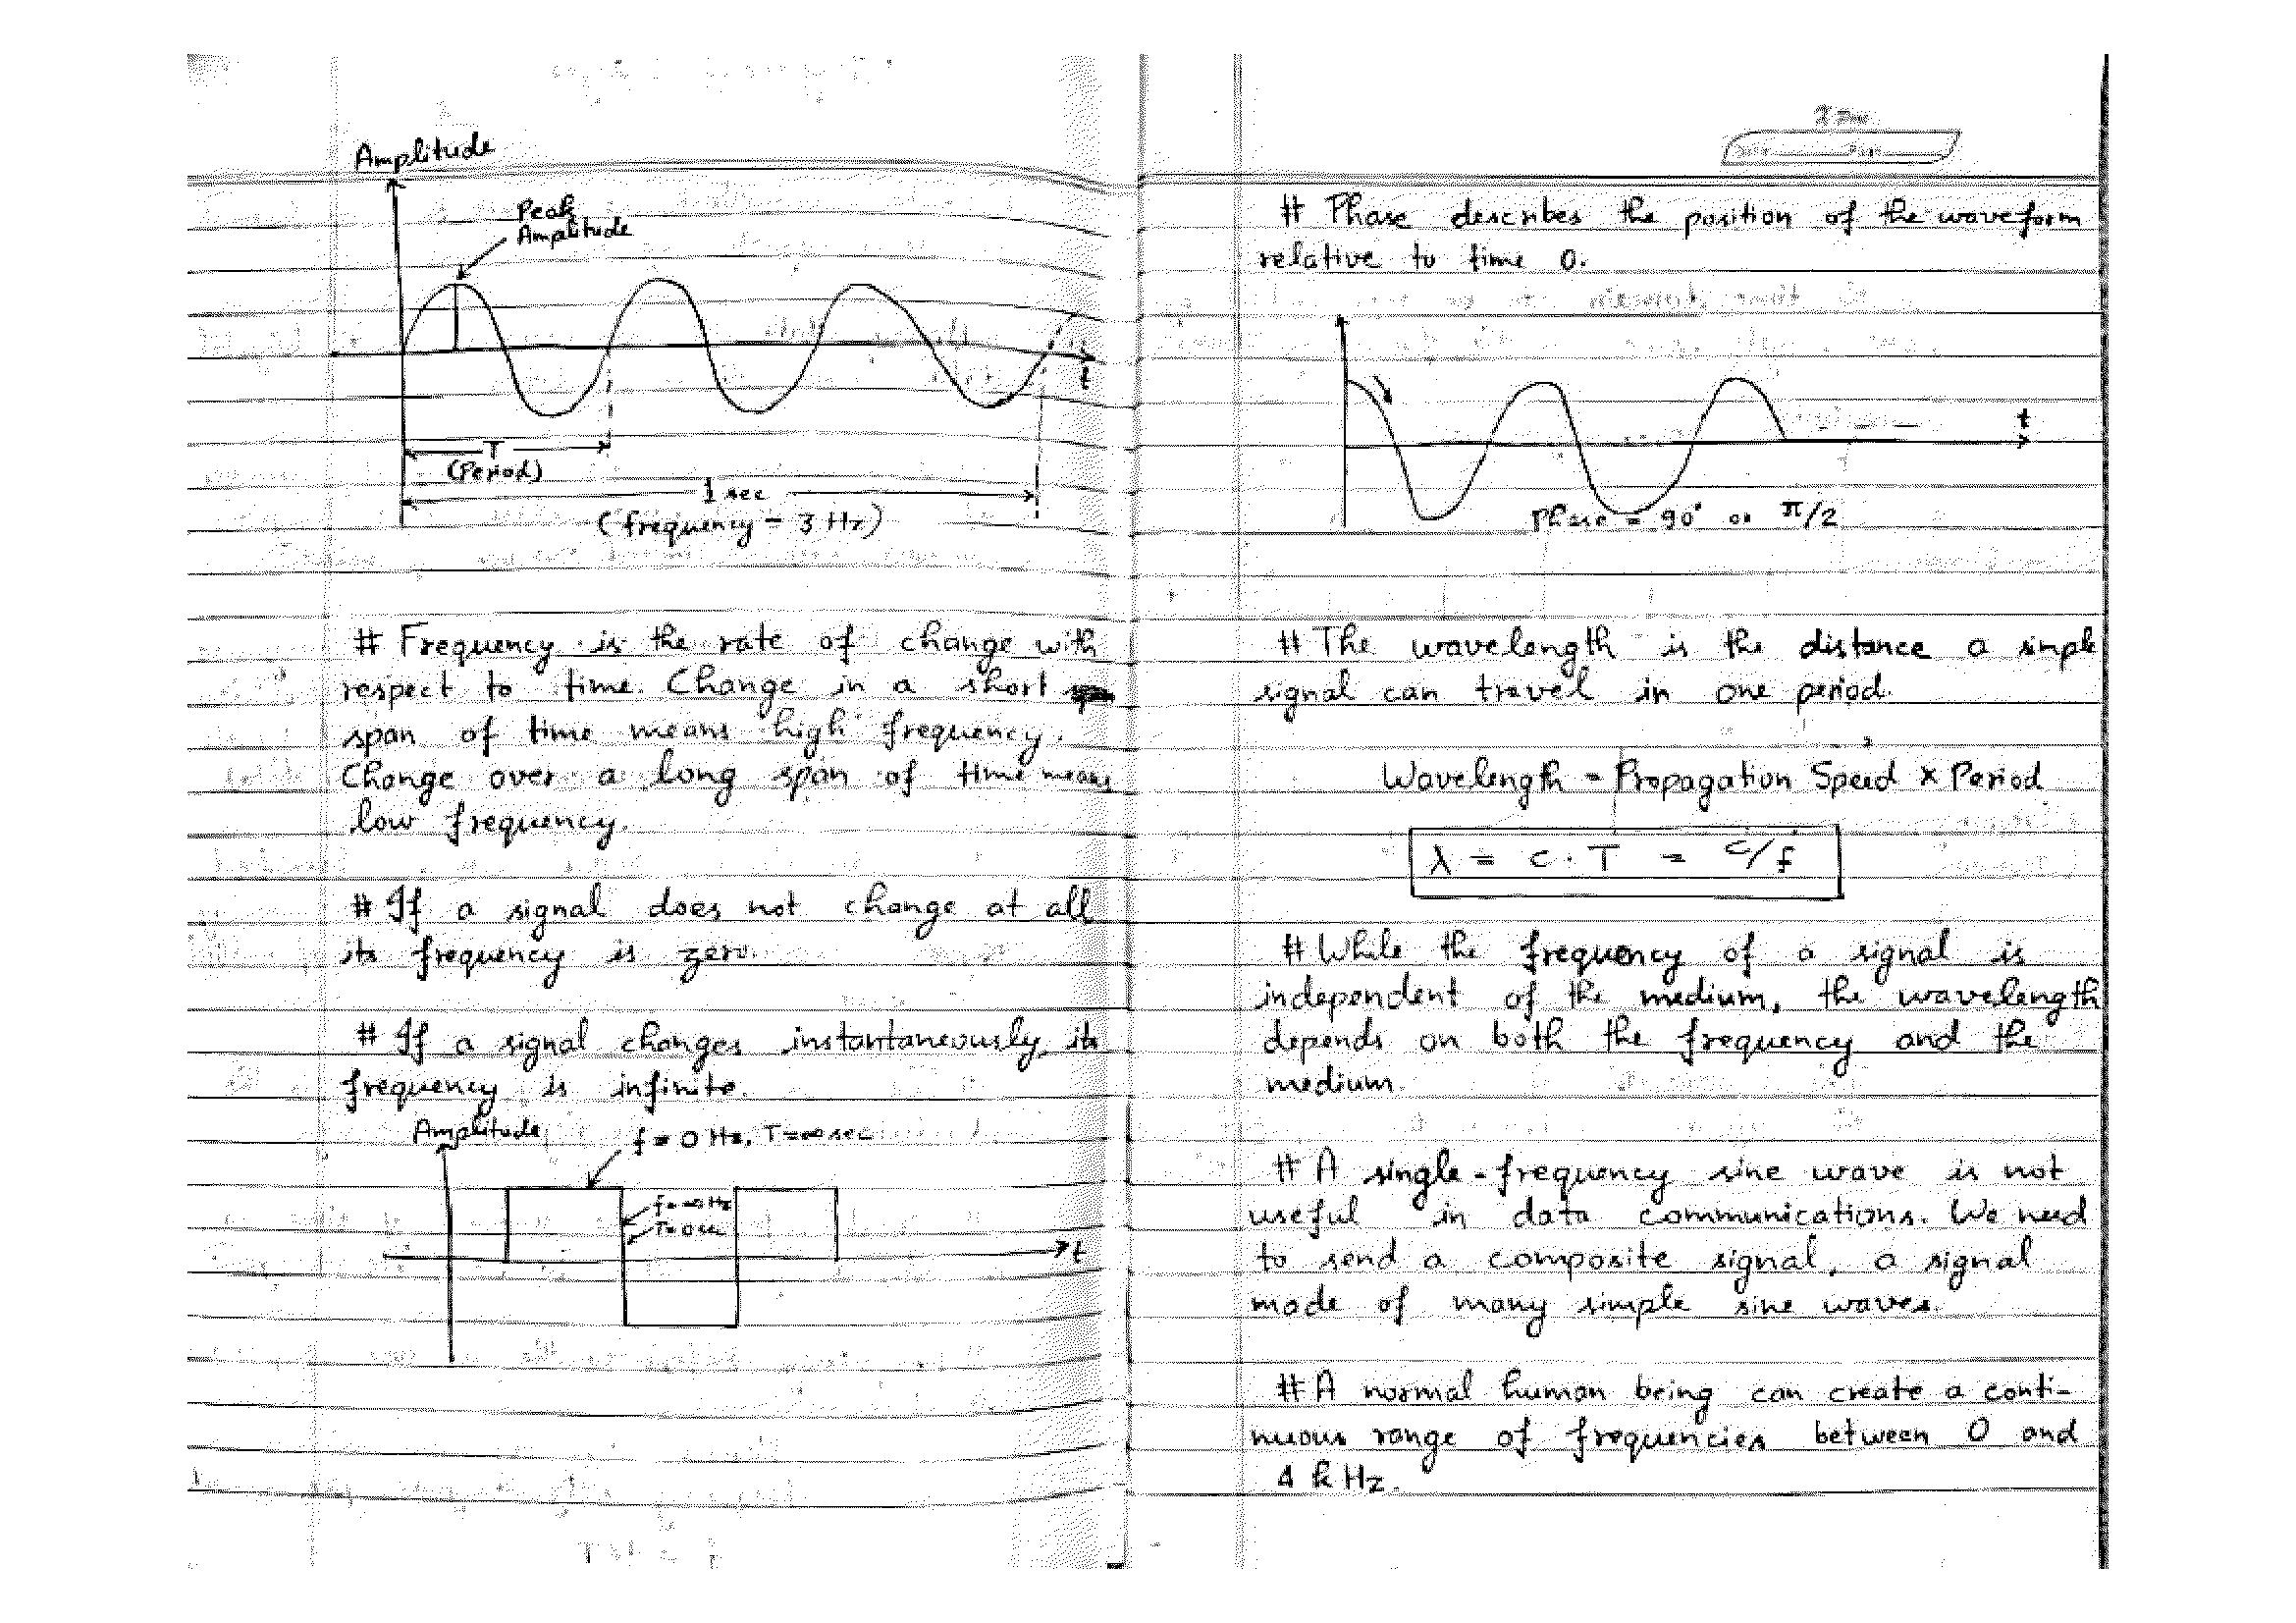 Amplitude
Peak
Amplitude
t
T
(Period)
1 sec
(frequency - 3 Hz)
# Frequency is the rate of change with
respect to time. Change in a short
span of time means high frequency.
Change over a long span of time means
low frequency.
# If a signal does not change at all
its frequency is zero.
# If a signal changes instantaneously, its
frequency is infinite.
Amplitude
f = 0 Hz, T = ∞ sec
f = ∞ Hz
T = 0 sec
t
# Phase describes the position of the waveform
relative to time 0.
t
Phase = 90° or π/2
# The wavelength is the distance a simple
signal can travel in one period.
Wavelength = Propagation Speed × Period
λ = c . T = c/f
# While the frequency of a signal is
independent of the medium, the wavelength
depends on both the frequency and the
medium.
# A single-frequency sine wave is not
useful in data communications. We need
to send a composite signal, a signal
made of many simple sine waves.
# A normal human being can create a conti-
nuous range of frequencies between 0 and
4 kHz.